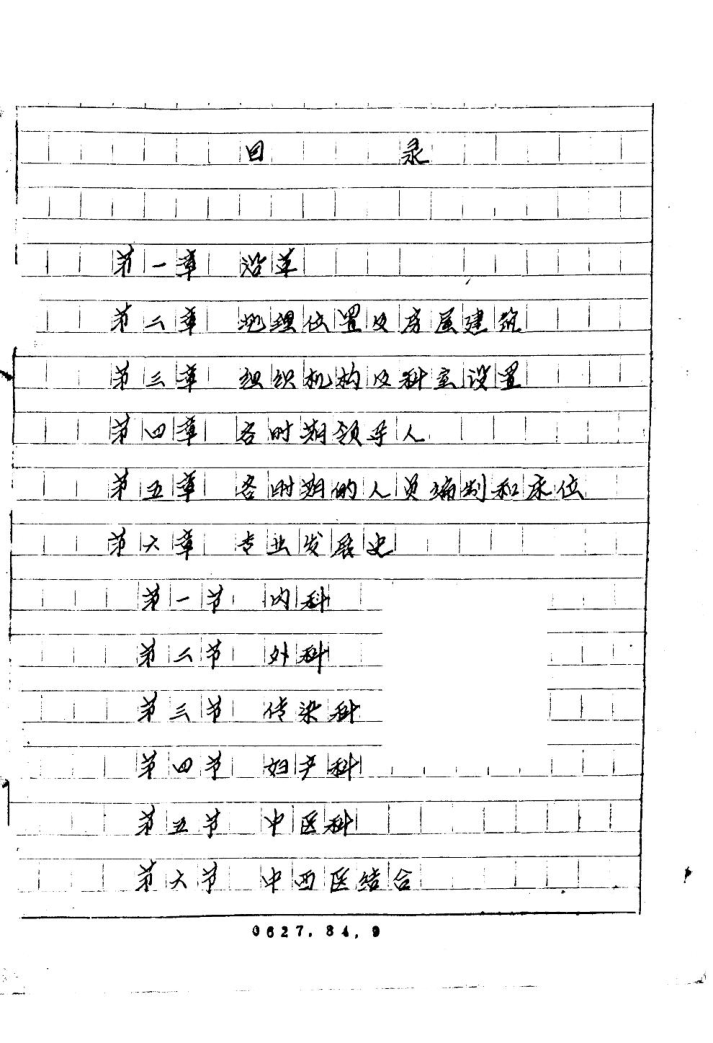 目录
第一章 沿革
第二章 地理位置及房屋建筑
第三章 组织机构及科室设置
第四章 各时期领导人
第五章 各时期的人员编制和床位
第六章 专业发展史
第一节 内科
第二节 外科
第三节 传染科
第四节 妇产科
第五节 中医科
第六节 中西医结合
0627.84.9